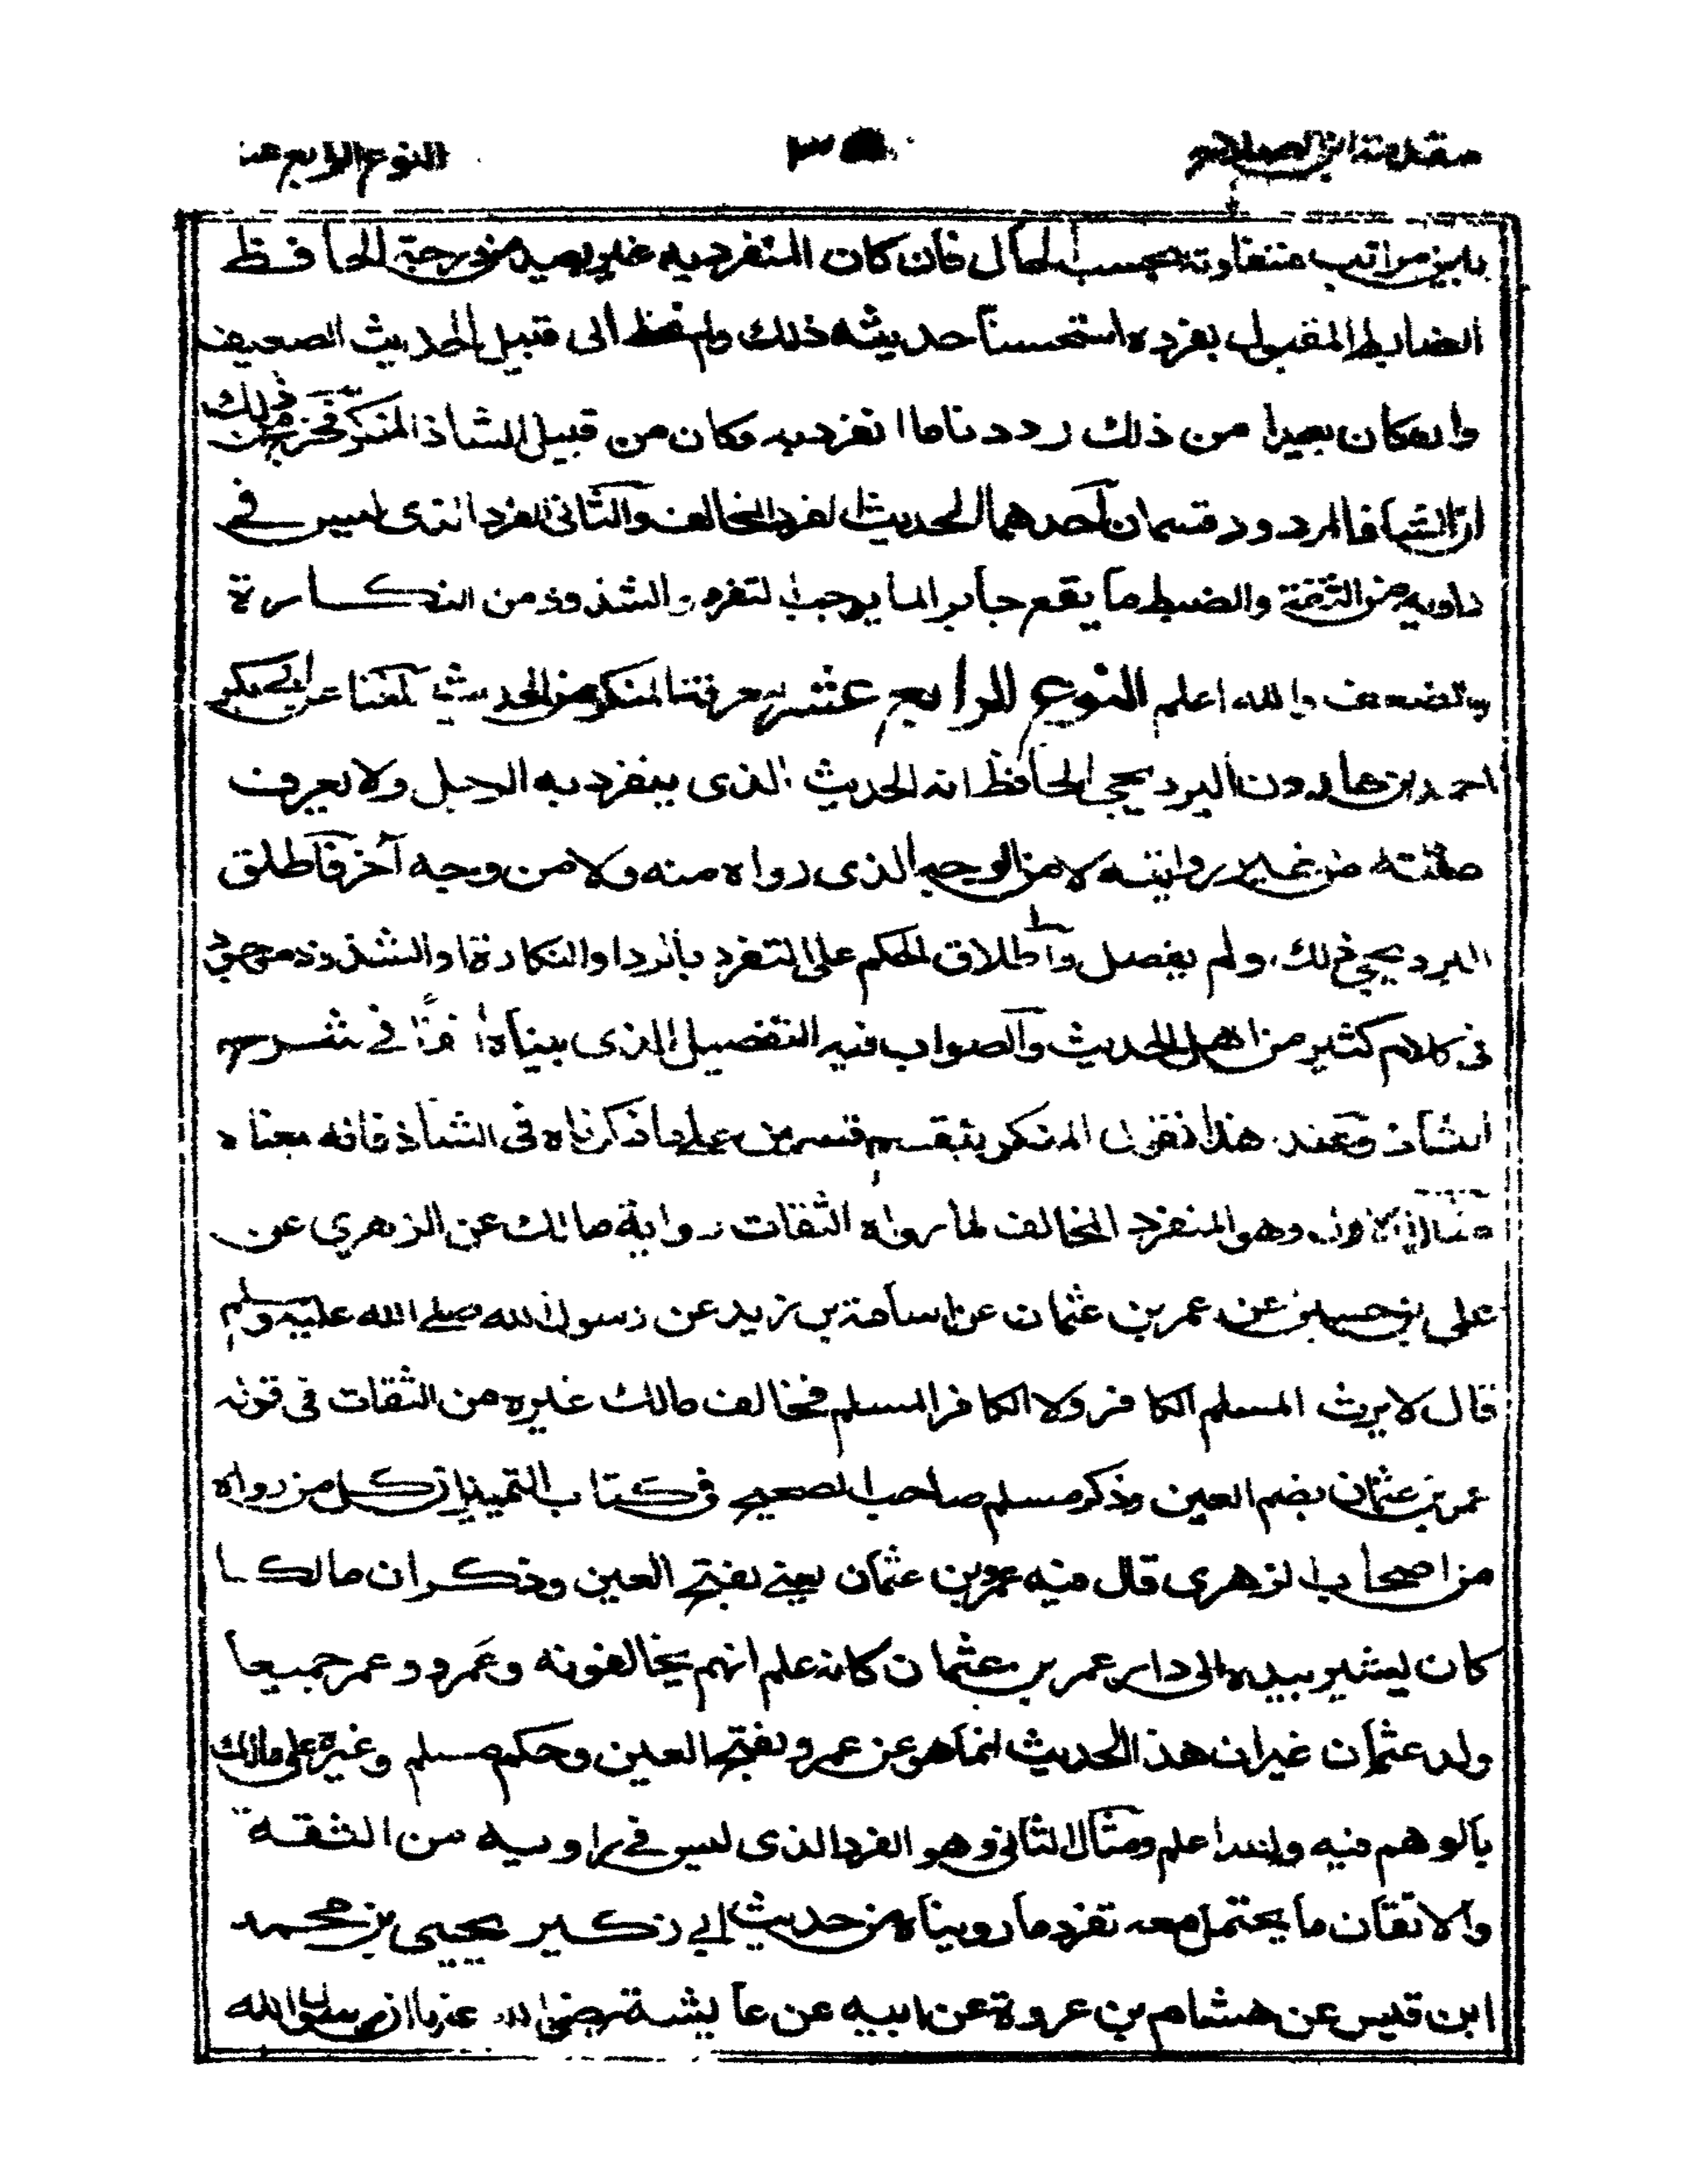 مقدمة ابن الصلاح ٣ النوع الرابع عشر
بين مراتب متفاوتة بحسب الحال فان كان المنفرد به غير بعيد من درجة الحافظ
الضابط المقبول بفرده استحسنا حديثه ذلك ولم نحط الى قبيل الحديث الضعيف
وان كان بعيدا من ذلك رددنا ما انفرد به وكان من قبيل الشاذ المنكر فخرج من ذلك
ان الشاذ المردود قسمان احدهما الحديث الفرد المخالف والثانى الفرد الذى ليس فى
راويه من الثقة والضبط ما يقع جابرا لما يوجب التفرد والشذوذ من النكارة
والضعف والله اعلم النوع الرابع عشر معرفة المنكر من الحديث بلغنا عن ابى بكر
احمد بن هارون البرديجى الحافظ انه الحديث الذى ينفرد به الرجل ولا يعرف
متنه من غير روايته لا من الوجه الذى رواه منه ولا من وجه آخر فاطلق
البرديجى ذلك ولم يفصل واطلاق الحكم على التفرد بالرد او النكارة او الشذوذ موجود
فى كلام كثير من اهل الحديث والصواب فيه التفصيل الذى بيناه آنفًا فى شرح
الشاذ وعند هذا نقول المنكر ينقسم قسمين على ما ذكرناه فى الشاذ فانه بمعناه
مثال الاول وهو المنفرد المخالف لما رواه الثقات رواية مالك عن الزهري عن
على بن حسين عن عمر بن عثمان عن اسامة بن زيد عن رسول الله صلى الله عليه وسلم
قال لا يرث المسلم الكافر ولا الكافر المسلم فخالف مالك غيره من الثقات فى قوله
عمر بن عثمان بضم العين وذكر مسلم صاحب الصحيح فى كتاب التميز ان كل من رواه
من اصحاب الزهرى قال فيه عمرو بن عثمان يعنى بفتح العين وذكر ان مالكا
كان يشير بيده الى دار عمر بن عثمان كانه علم انهم يخالفونه وعَمرو وعمر جميعا
ولد عثمان غير ان هذا الحديث انما هو عن عمرو بفتح العين وحكم مسلم وغيره على مالك
بالوهم فيه والله اعلم ومثال الثانى وهو الفرد الذى ليس فى راويه من الثقة
والاتقان ما يحتمل معه تفرده ما رويناه من حديث ابى زكير يحيى بن محمد
ابن قيس عن هشام بن عروة عن ابيه عن عايشة رضى الله عنها ان رسول الله